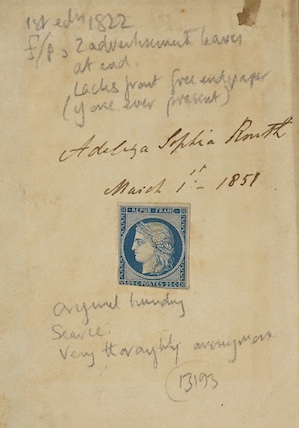 1st edn 1822
f/p, 2 advertisement leaves
at end.
Lacks front free endpaper
(if one ever present)
Adeliza Sophia Routh
March 1st - 1851
REPUB. FRANC.
25 C POSTES 25 C
Original binding
Scarce.
Very thoroughly anonymous
13193